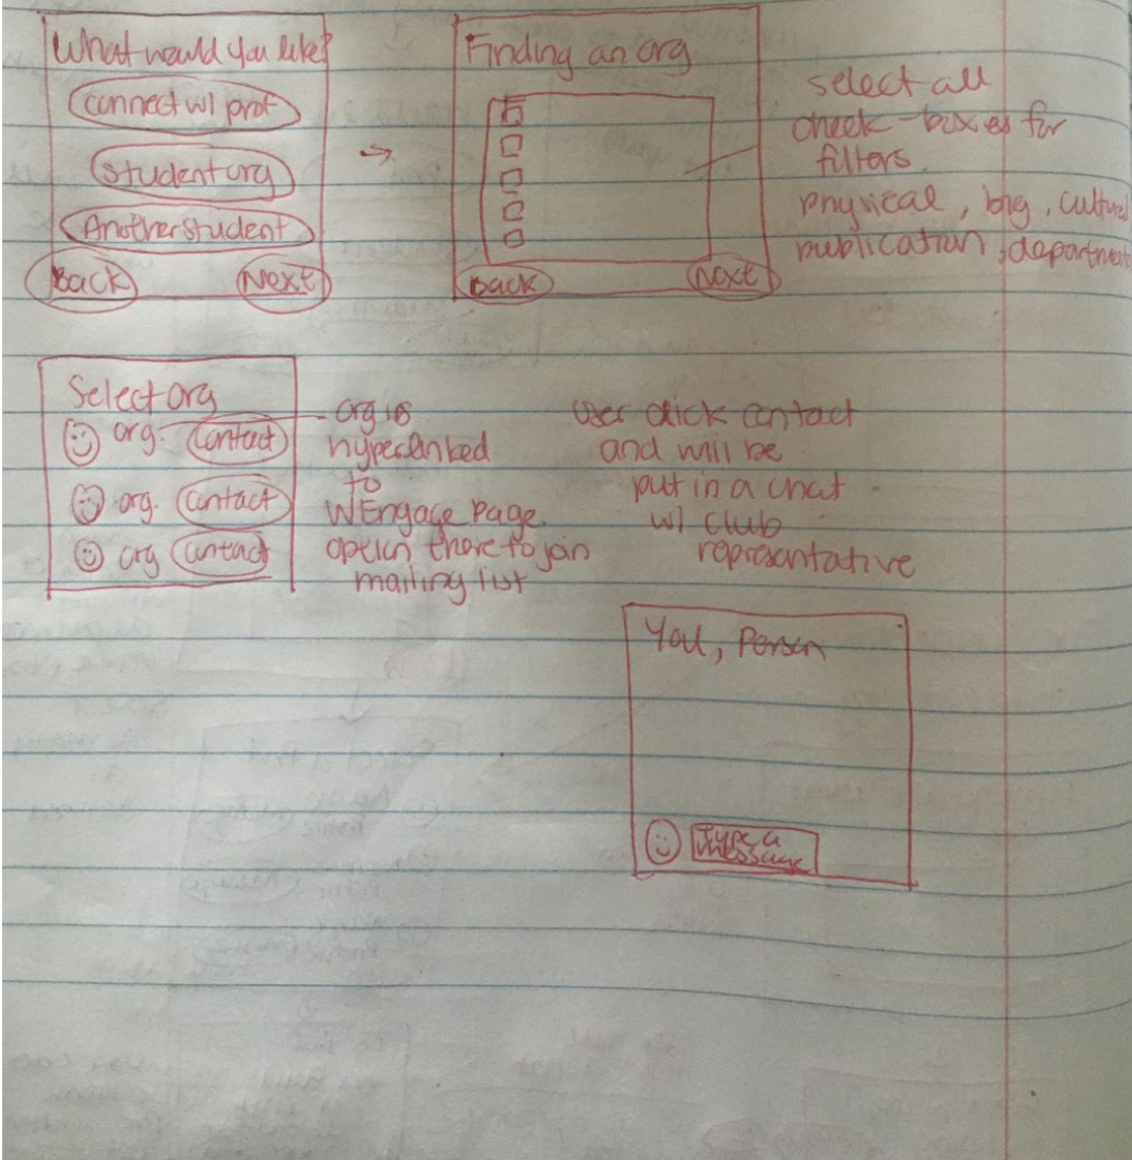 What would you like?
connect w/ prof
student org
Another student
Back
Next
Finding an org
Back
Next
select all
check-boxes for
filters.
physical, big, cultural
publication, department
Select org
org.
contact
org.
contact
org
contact
org is
hyperlinked
to
WEngage page.
option there to join
mailing list
user click contact
and will be
put in a chat
w/ club
representative
You, Person
Type a
message